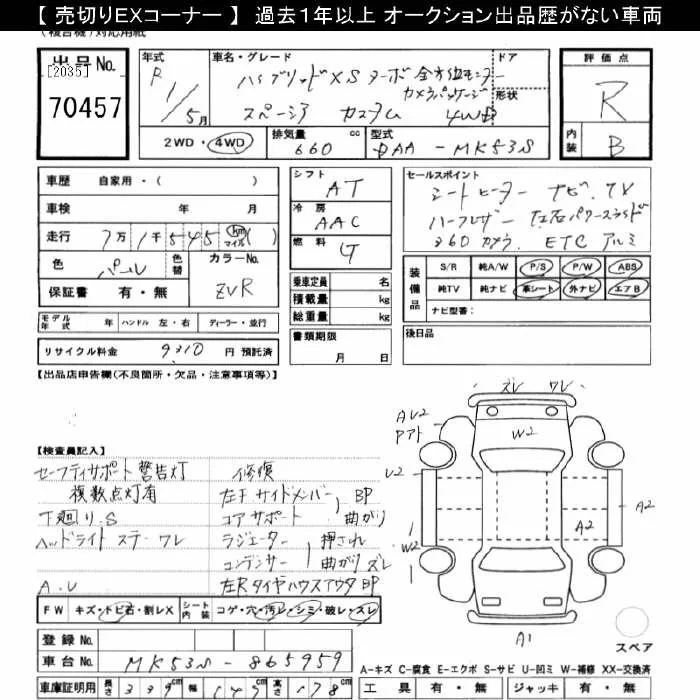 【 売切りEXコーナー 】 過去1年以上 オークション出品歴がない車両
出品No.
[2035]
70457
年式
R 1/5月
車名・グレード
ドア
ハイブリッドXS ターボ 全方位モニター
カメラパッケージ
形状
スペーシア カスタム 4WD
評価点
R
内装
B
2WD・4WD
排気量 660 cc
型式 DAA-MK53S
車歴 自家用・( )
車検 年 月
走行 7万1千545 km マイル ( )
色 パール
色替
カラーNo. ZVR
保証書 有・無
シフト AT
冷房 AAC
燃料 G
乗車定員 名
積載量 kg
総重量 kg
書類期限
月 日
セールスポイント
シートヒーター ナビ.TV
ハーフレザー 左右パワースライド
360カメラ. ETC アルミ
装備品
S/R 純A/W P/S P/W ABS
純TV 純ナビ 革シート 外ナビ エアB
ナビ型番:
後日品
モデル年式 年 ハンドル 左・右 ディーラー・並行
リサイクル料金 9310 円 預託済
【出品店申告欄(不良箇所・欠品・注意事項等)】
【検査員記入】
セーフティサポート 警告灯
複数点灯有
下廻り.S
ヘッドライト ステーワレ
A.U
修復
左F サイドメンバー
コアサポート
BP
曲がり
ラジエーター
コンデンサー
押され
曲がり ズレ
左Rタイヤハウスアウタ BP
FW キズ・トビ石・割レX
シート内装 コゲ・穴・汚レ・シミ・破レ・スレ
登録No.
車台No. MK53S-865959
車庫証明用 長さ 339cm 幅 147cm 高さ 178cm
ズレ ワレ
AU2
Pアト
W2
U2
A2
A2
W2
A1
スペア
A-キズ C-腐食 E-エクボ S-サビ U-凹ミ W-補修 XX-交換済
工具 有・無 ジャッキ 有・無